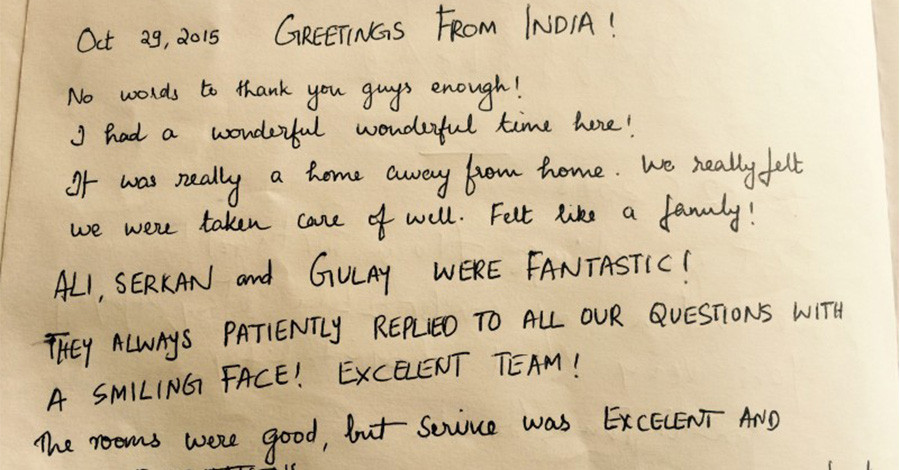 Oct 29, 2015 GREETINGS FROM INDIA!
No words to thank you guys enough!
I had a wonderful wonderful time here!
It was really a home away from home. We really felt
we were taken care of well. Felt like a family!
ALI, SERKAN and GULAY WERE FANTASTIC!
THEY ALWAYS PATIENTLY REPLIED TO ALL OUR QUESTIONS WITH
A SMILING FACE! EXCELENT TEAM!
The rooms were good, but Serivce was EXCELENT AND